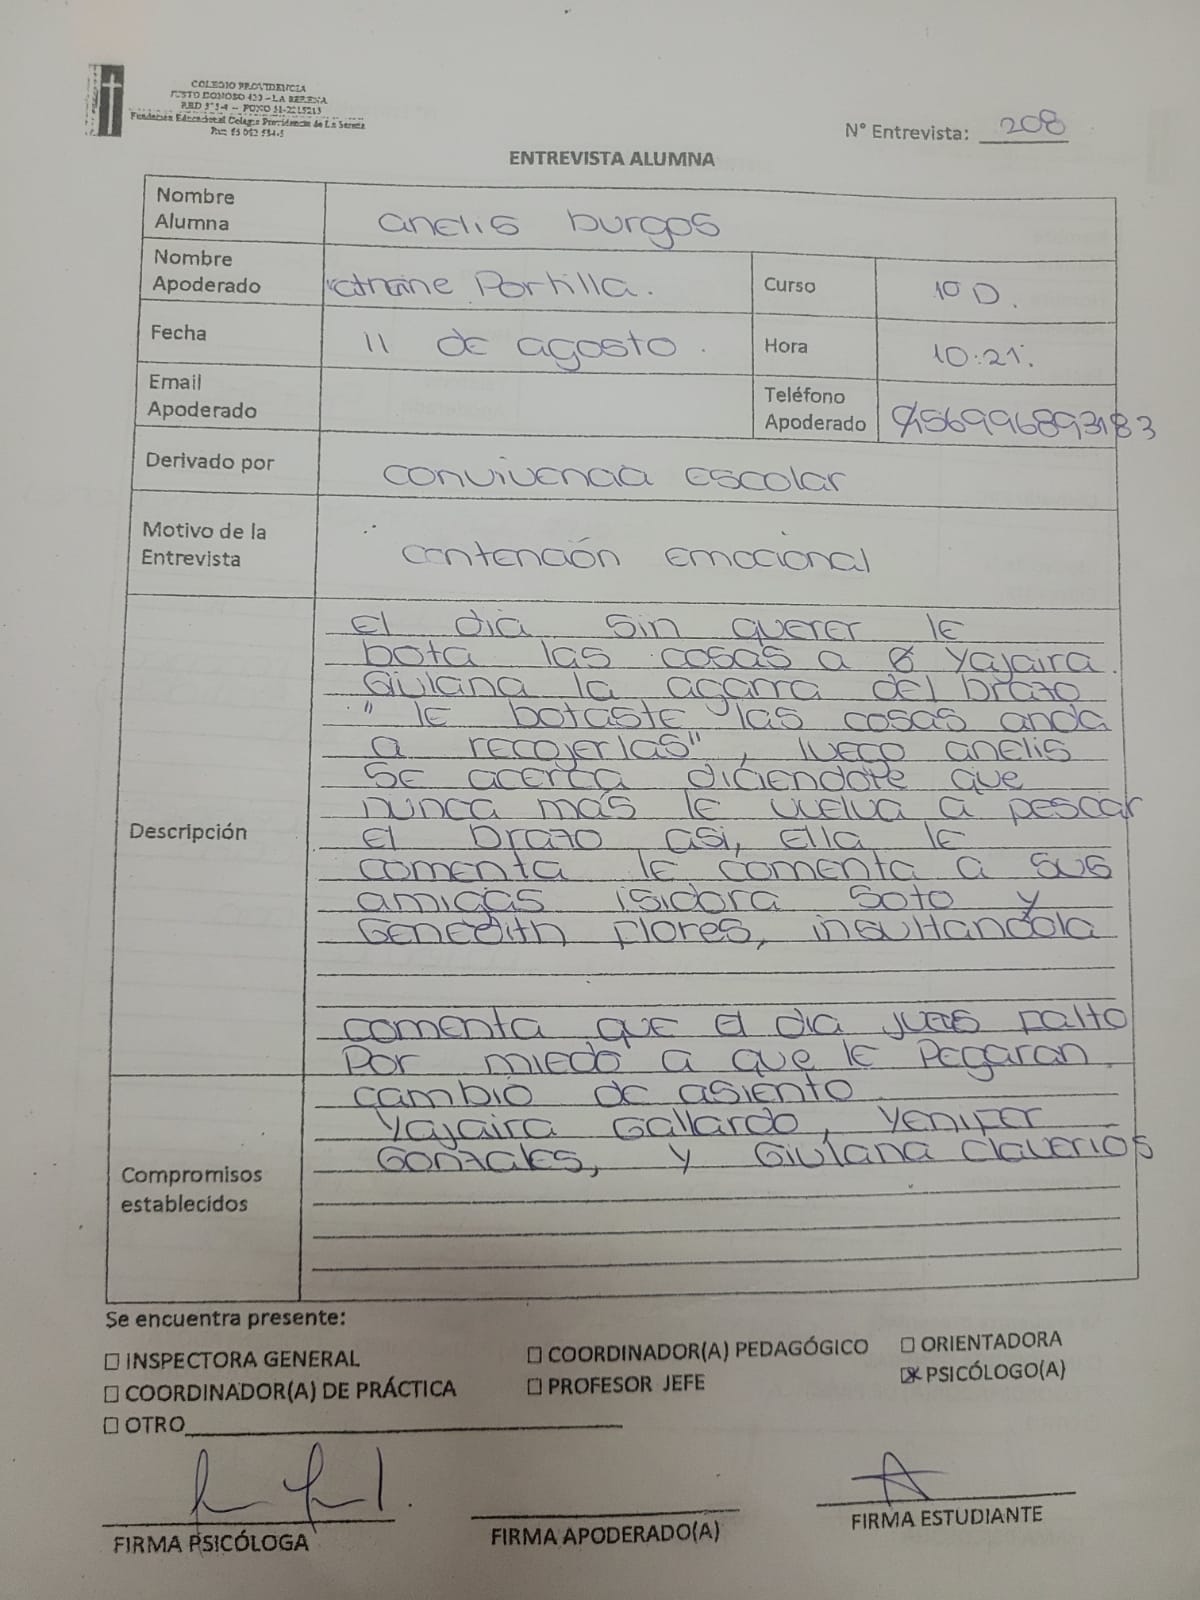 COLEGIO PROVIDENCIA
JUSTO DONOSO 420 - LA SERENA
Fundación Educacional Colegio Providencia de La Serena
N° Entrevista: 208
ENTREVISTA ALUMNA
Nombre Alumna anelis burgos
Nombre Apoderado Portilla. Curso 1º D.
Fecha 11 de agosto. Hora 10:21.
Email Apoderado Teléfono Apoderado 56996893183
Derivado por convivencia escolar
Motivo de la Entrevista contención emocional
Descripción
El dia sin querer le
bota las cosas a Yajaira.
Giulana la agarra del brazo
" le botaste las cosas anda
a recojerlas", luego anelis
se acerca diciendole que
nunca más le vuelva a pescar
el brazo asi, ella le
comenta le comenta a sus
amigas isidora soto y
Genedith flores, insultandola
comenta que el dia jues falto
Por miedo a que le Pegaran
cambio de asiento
Yajaira Gallardo, Yenifer
Gonzales, y Giulana Claverios
Compromisos establecidos
Se encuentra presente:
☐ INSPECTORA GENERAL ☐ COORDINADOR(A) PEDAGÓGICO ☐ ORIENTADORA
☐ COORDINADOR(A) DE PRÁCTICA ☐ PROFESOR JEFE ☒ PSICÓLOGO(A)
☐ OTRO
FIRMA PSICÓLOGA FIRMA APODERADO(A) FIRMA ESTUDIANTE